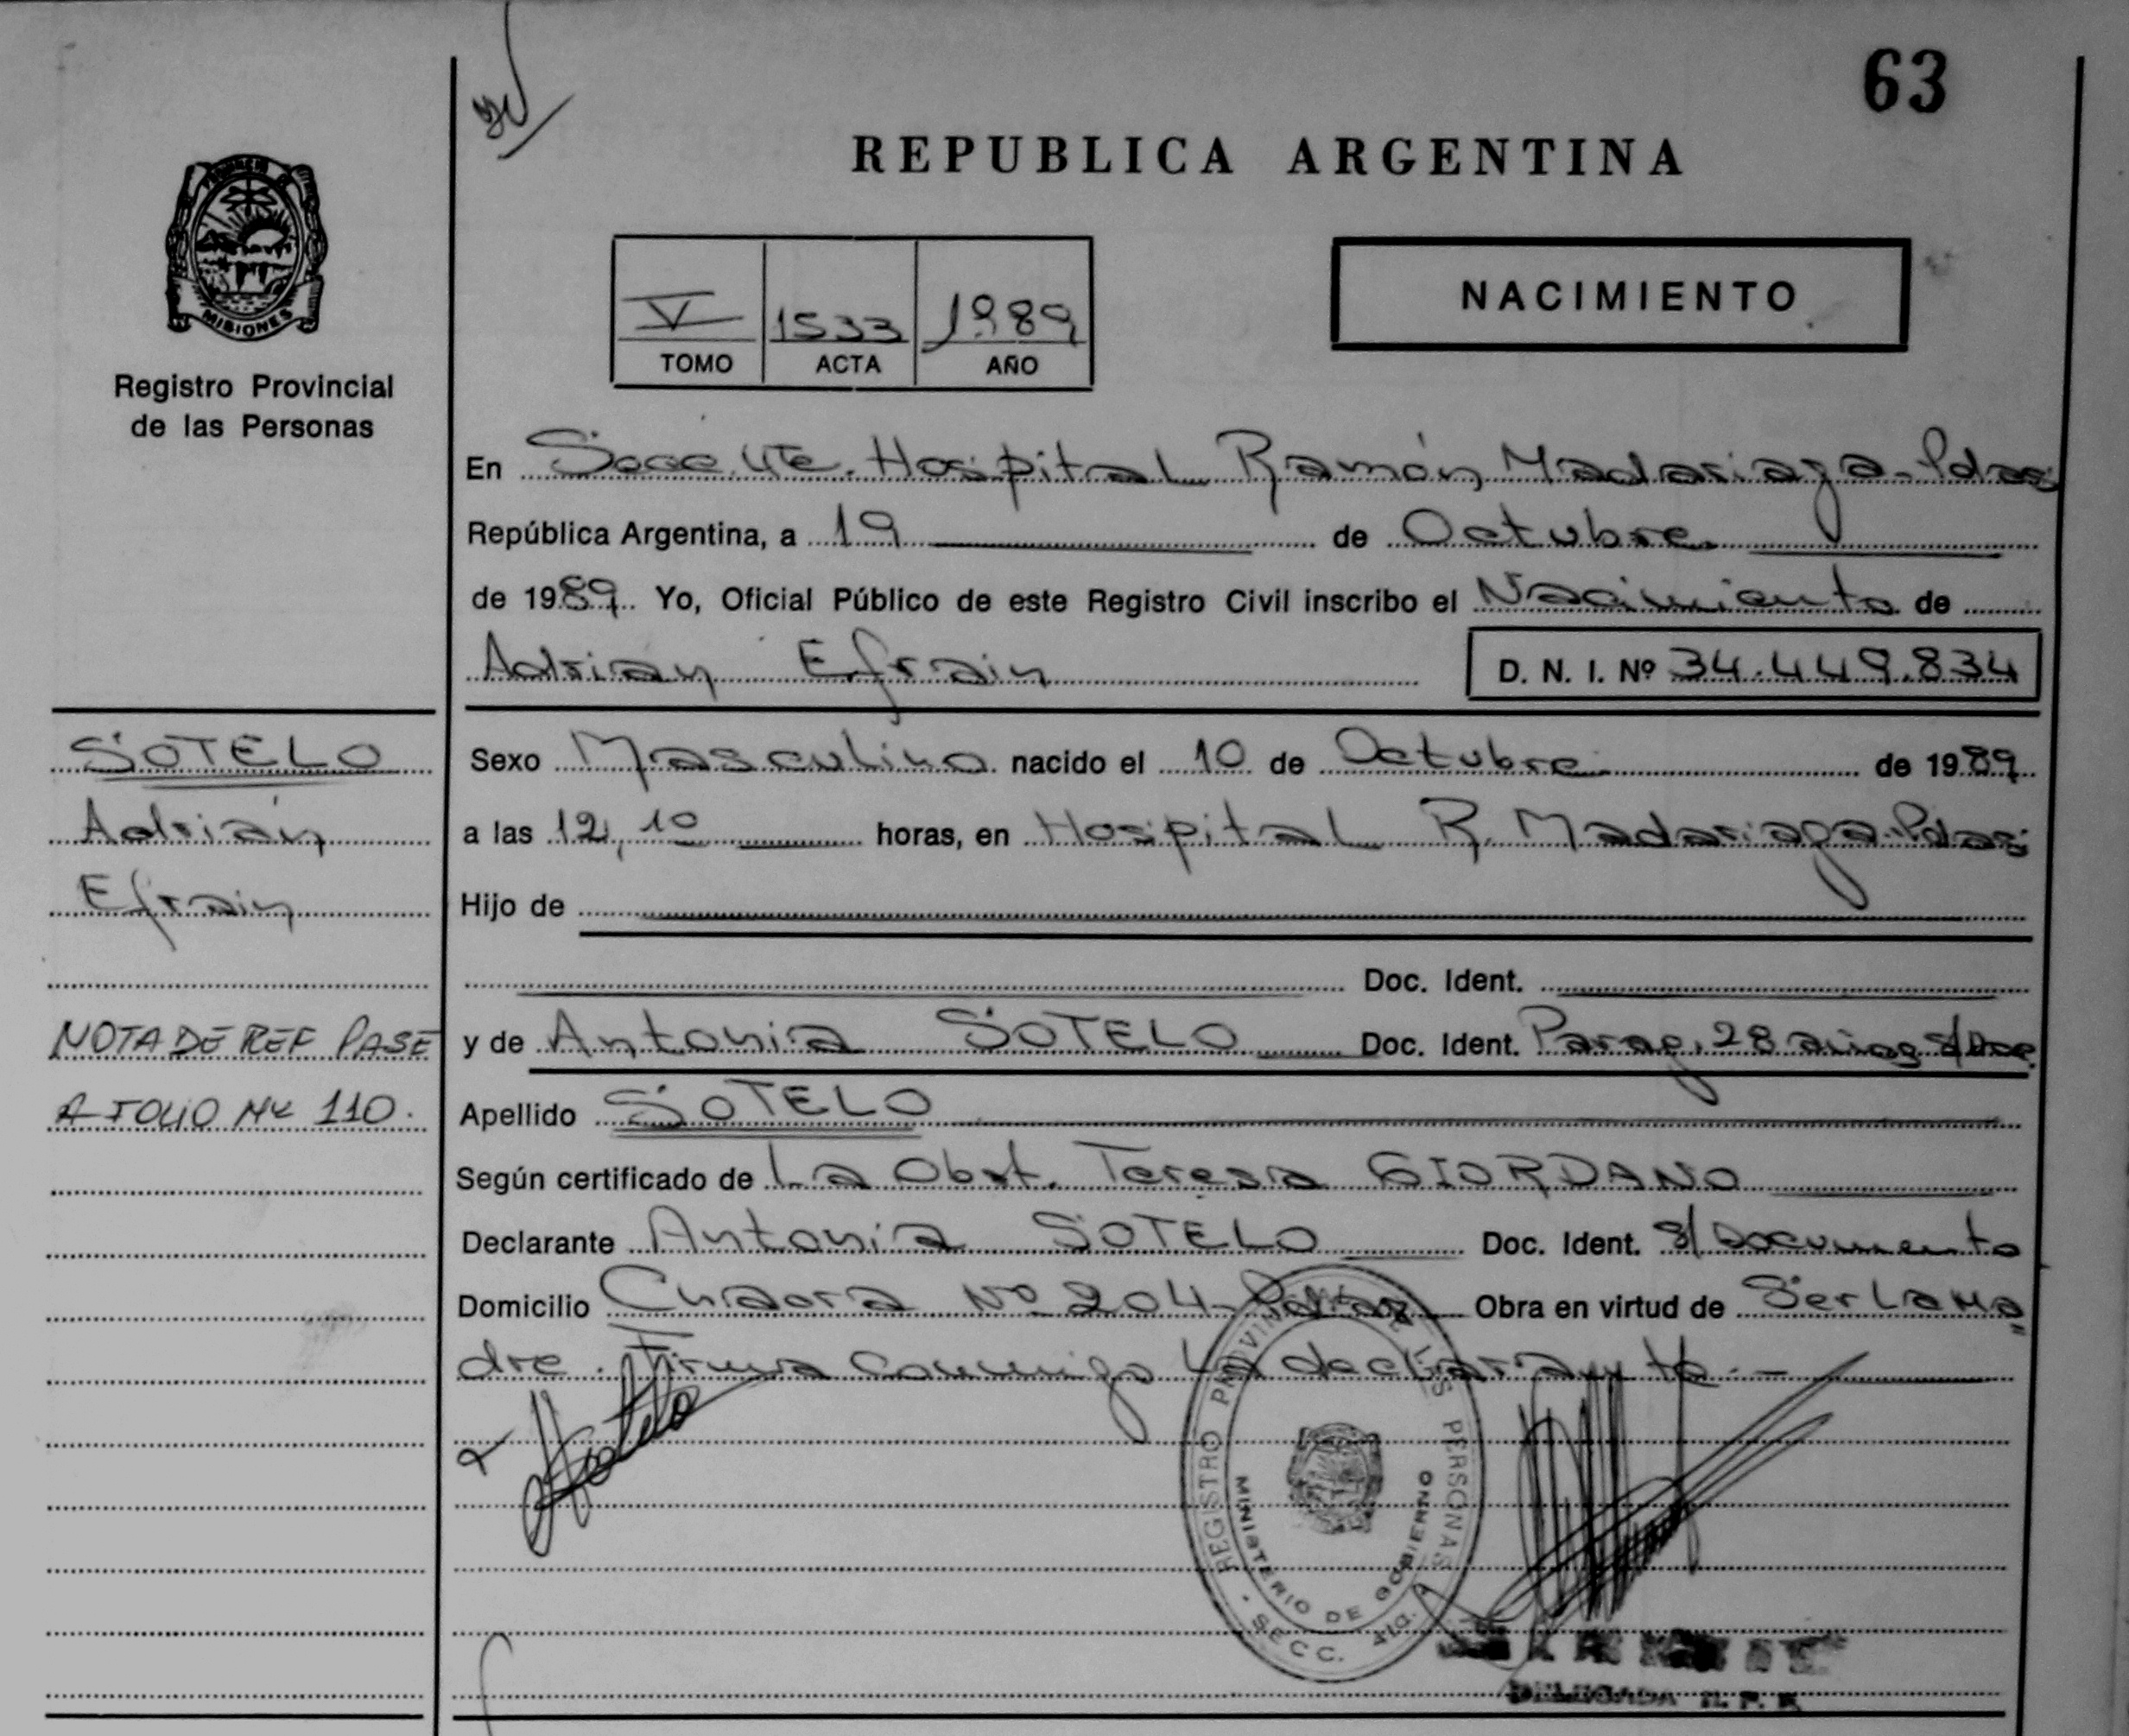 63
REPUBLICA ARGENTINA
PROVINCIA DE
MISIONES
Registro Provincial
de las Personas
V 1533 1989
TOMO ACTA AÑO
NACIMIENTO
En Secc. 4ta. Hospital Ramón Madariaga - Pdas
República Argentina, a 19 de Octubre
de 1989. Yo, Oficial Público de este Registro Civil inscribo el Nacimiento de
Adrian Efrain D. N. I. Nº 34.449.834
SOTELO
Adrián
Efrain
NOTA DE REF PASE
A FOLIO Nº 110.
Sexo Masculino nacido el 10 de Octubre de 1989
a las 12,10 horas, en Hospital R. Madariaga - Pdas
Hijo de
Doc. Ident.
y de Antonia SOTELO Doc. Ident. Parag. 28 años s/Doc.
Apellido SOTELO
Según certificado de La Obst. Teresa GIORDANO
Declarante Antonia SOTELO Doc. Ident. S/Documento
Domicilio Nº 204 - Pdas Obra en virtud de Ser La Ma
dre. Firma conmigo La declarante.-
Sotelo
REGISTRO PROVINCIAL DE LAS PERSONAS
MINISTERIO DE GOBIERNO
SECC. 4ta.
DELEGADA R. P. P.